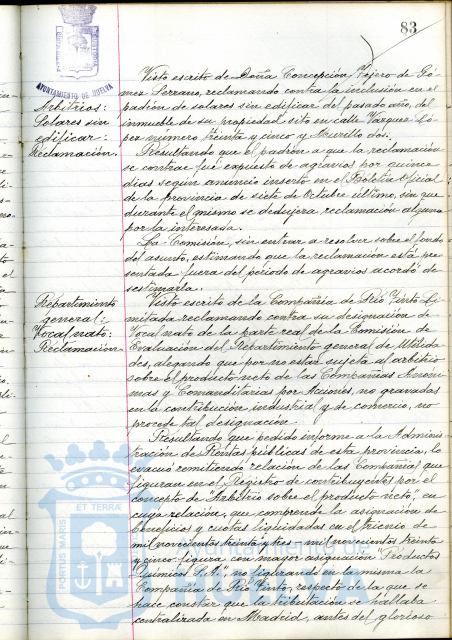 83
AYUNTAMIENTO DE HUELVA
Arbitrios:
Solares sin
edificar:
Reclamación.
Visto escrito de Doña Concepción Tejero de Gó-
mez Serrano, reclamando contra la inclusión en el
padrón de solares sin edificar del pasado año, del
inmueble de su propiedad sito en calle Vázquez Ló-
pez número treinta y cinco y
Resultando que el padrón a que la reclamación
se contrae fué expuesto de agravios por quince
días según anuncio inserto en el Boletín Oficial
de la provincia de siete de Octubre último, sin que
durante el mismo se dedujera reclamación alguna
por la interesada.
La Comisión, sin entrar a resolver sobre el fondo
del asunto, estimando que la reclamación está pre-
sentada fuera del período de agravios acordó de-
sestimarla.
Repartimiento
general:
Vocal nato:
Reclamación
Visto escrito de la Compañía de Río Tinto Li-
mitada reclamando contra su designación de
Vocal nato de la parte real de la Comisión de
Evaluación del Repartimiento general de Utilida-
des, alegando que por no estar sujeta al arbitrio
sobre el producto neto de las Compañías Anóni-
mas y Comanditarias por Acciones, no gravadas
en la contribución industrial y de comercio, no
procede tal designación.
Resultando que pedido informe a la Adminis-
tración de Rentas públicas de esta provincia, lo
evacuó remitiendo relación de las Compañías que
figuran en el Registro de contribuyentes por el
concepto de "Arbitrio sobre el producto neto", en
cuya relación, que comprende la asignación de
beneficios y cuotas liquidadas en el trienio de
mil novecientos treinta y tres - mil novecientos treinta
y cinco figura con mayor asignación "Productos
Químicos S.A.", no figurando en la misma la
Compañía de Río Tinto, respecto de la que se
hace constar que la tributación se hallaba
centralizada en Madrid, antes del glorioso
PORTUS MARIS ET TERRAE
Ayuntamiento de
HUELVA